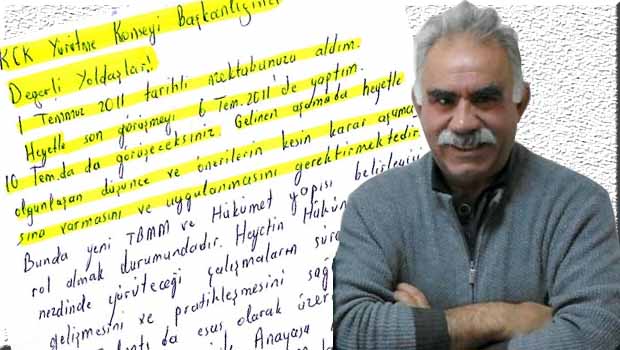 KCK Yürütme Konseyi Başkanlığına
Değerli Yoldaşlar!
1 Temmuz 2011 tarihli mektubunuzu aldım.
Heyetle son görüşmeyi 6 Tem.2011'de yaptım.
10 Tem.da da görüşeceksiniz. Gelinen aşamada heyetle
olgunlaşan düşünce ve önerilerin kesin karar aşama
sına varmasını ve uygulanmasını gerektirmektedir.
Bunda yeni TBMM ve Hükümet yapısı belirleyici
rol olmak durumundadır. Heyetin Hükü
nezdinde yürüteceği çalışmaların süra
gelişmesini ve pratikleşmesini sağ
da esas olarak üzer
Anayasa